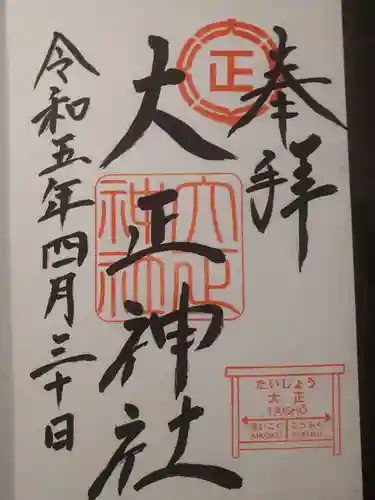 奉拝
大正神社
令和五年四月三十日
正
大正
神社
たいしょう
大正
TAISHŌ